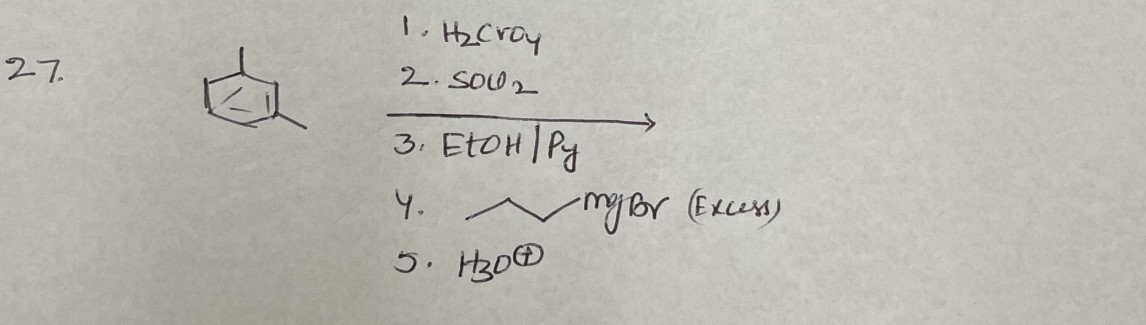 27.
1. H2CrO4
2. SOCl2
3. EtOH | Py
4. MgBr (Excess)
5. H3O⊕